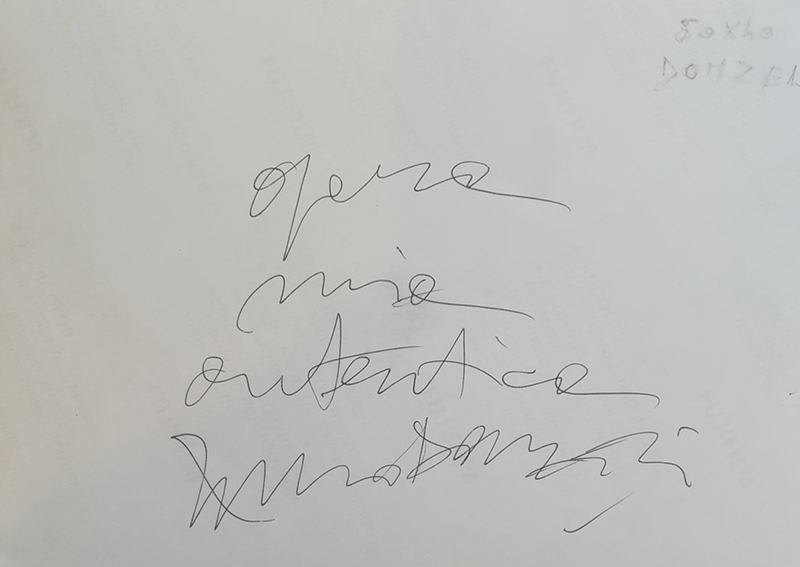 50x40
DONZEL
opera
mia
autentica
Bruno Donzelli